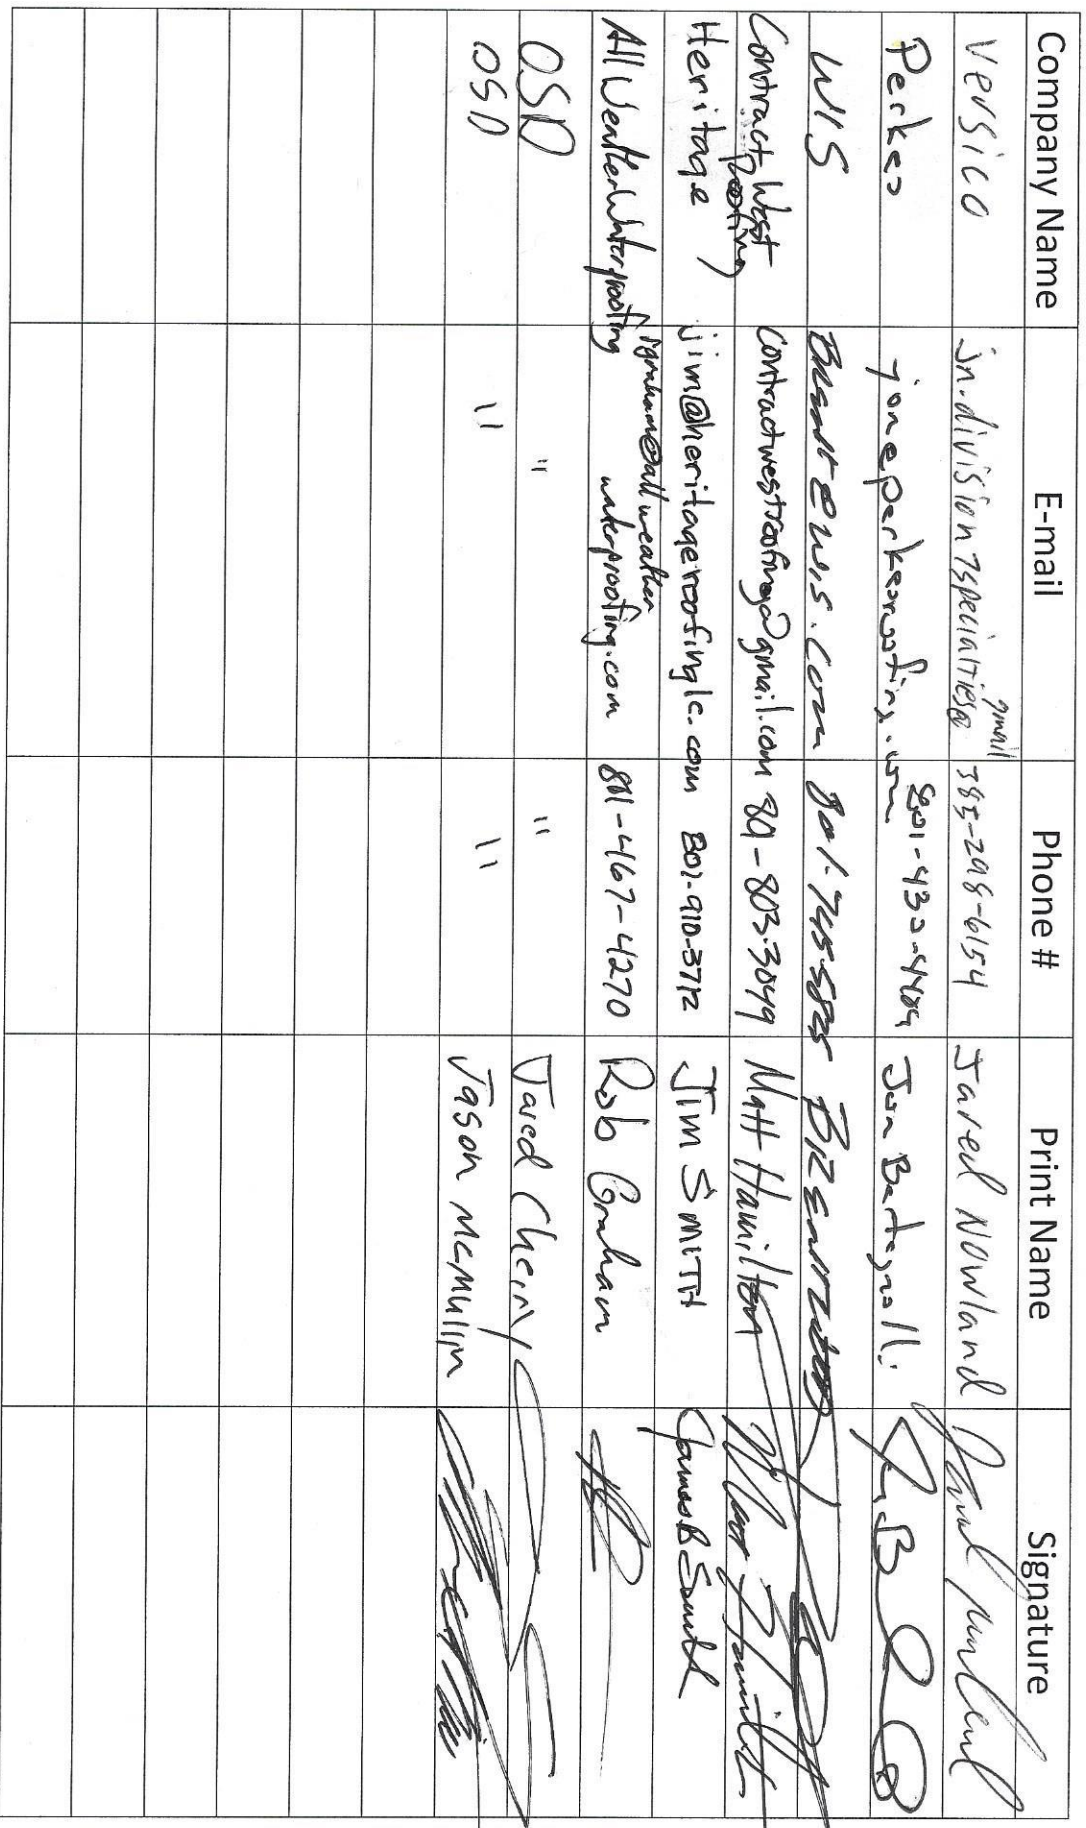 Company Name E-mail Phone # Print Name Signature
Versico jn.division7specialties@ gmail 385-298-6154 Jared Nowland
Perkes jon@perkesroofing.com 801-432-4404 Jon
WIS @ewis.com
Contract West Roofing contractwestroofing@gmail.com 801-803-3049 Matt Hamilton
Heritage jim@heritageroofingllc.com 801-910-3712 Jim SMITH James B Smith
All Weather Waterproofing rgraham@allweather waterproofing.com 801-467-4270 Rob Graham
OSD " " Jared Cherry
OSD " " Jason McMullin